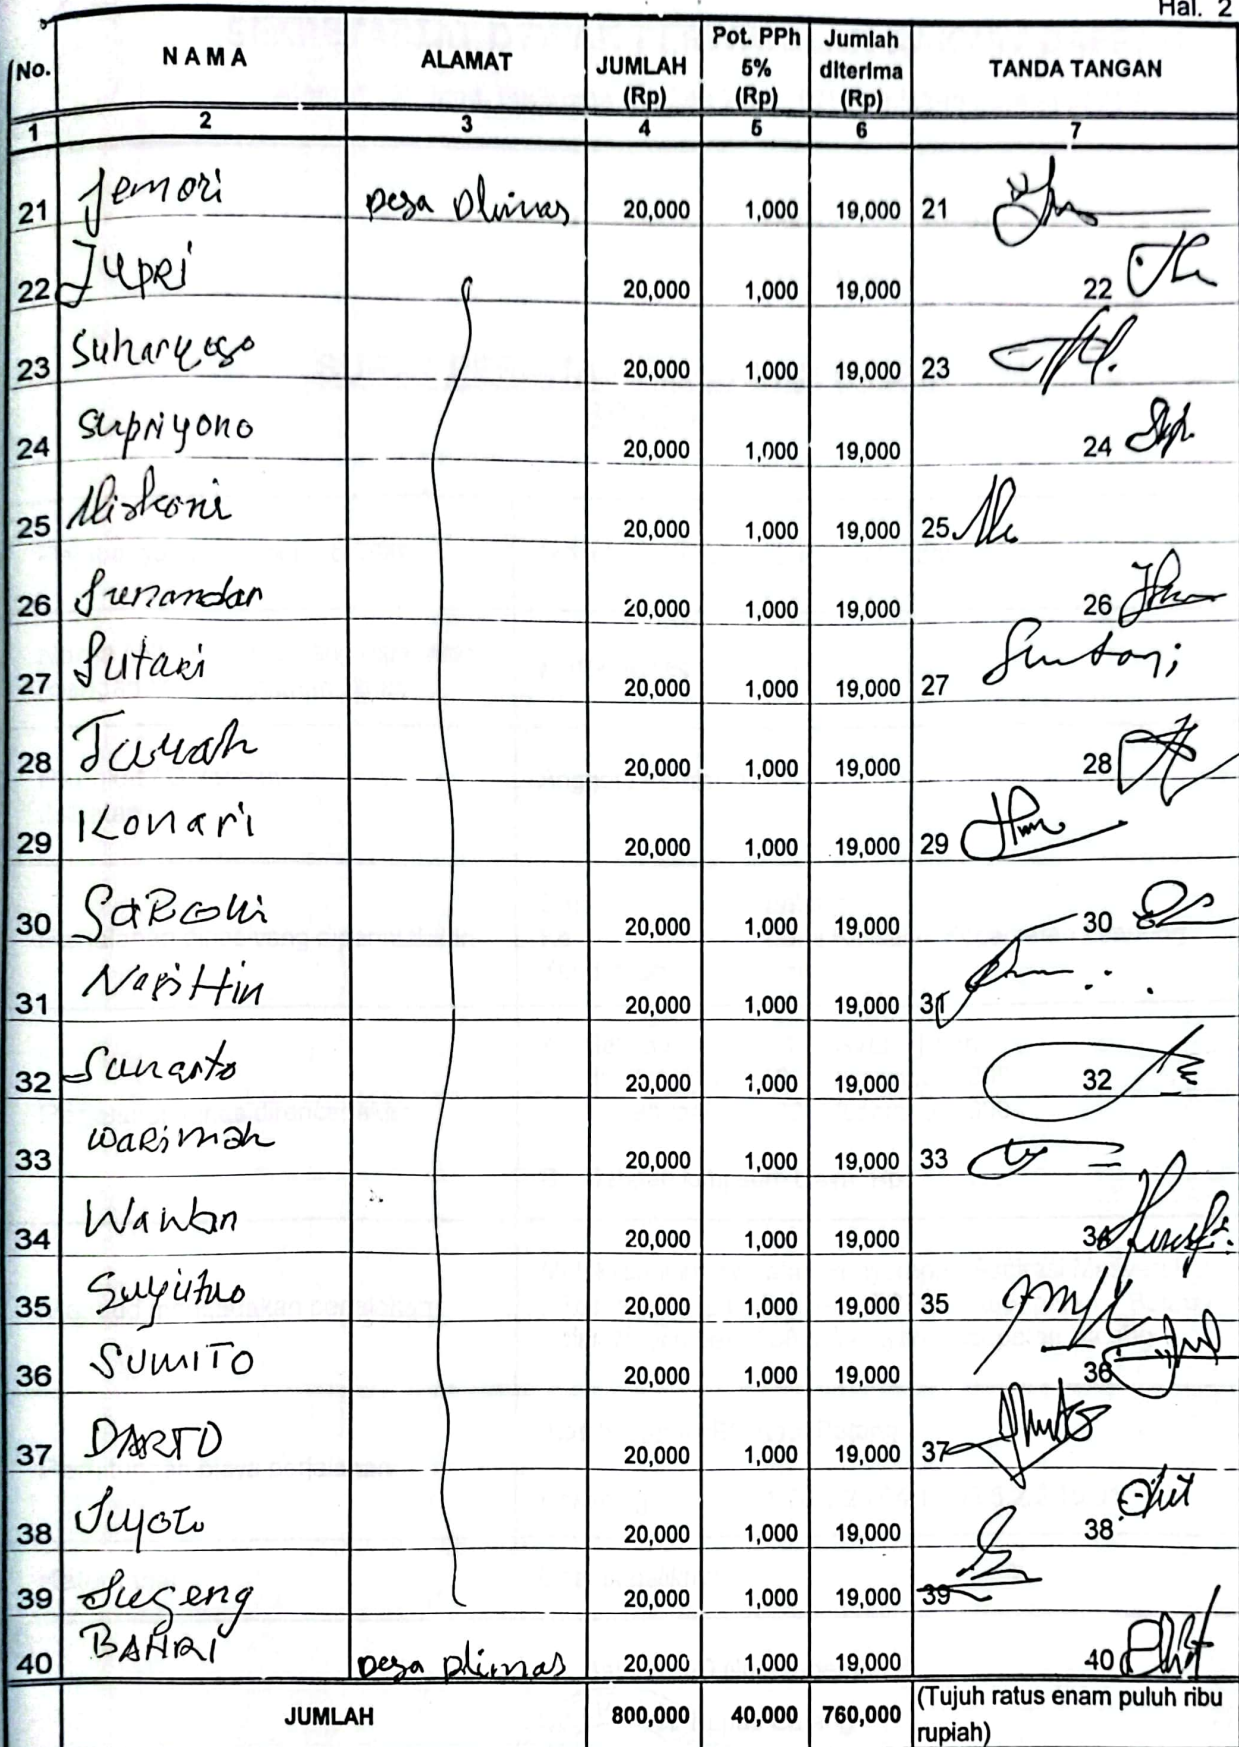 Hal. 2
No. NAMA ALAMAT JUMLAH (Rp) Pot. PPh 5% (Rp) Jumlah diterima (Rp) TANDA TANGAN
1 2 3 4 5 6 7
21 Jemori Desa Plimas 20,000 1,000 19,000 21
22 Jupri 20,000 1,000 19,000 22
23 Suharyoso 20,000 1,000 19,000 23
24 Supriyono 20,000 1,000 19,000 24
25 Miskoni 20,000 1,000 19,000 25
26 Sunandar 20,000 1,000 19,000 26
27 Sutari 20,000 1,000 19,000 27 Suntari
28 20,000 1,000 19,000 28
29 Konari 20,000 1,000 19,000 29
30 20,000 1,000 19,000 30
31 20,000 1,000 19,000 31
32 Sunarto 20,000 1,000 19,000 32
33 Warimah 20,000 1,000 19,000 33
34 Wawan 20,000 1,000 19,000 34
35 20,000 1,000 19,000 35
36 SUMITO 20,000 1,000 19,000 36
37 DARTO 20,000 1,000 19,000 37
38 Suyoto 20,000 1,000 19,000 38
39 Sugeng 20,000 1,000 19,000 39
40 BAHRI Desa Plimas 20,000 1,000 19,000 40
JUMLAH 800,000 40,000 760,000 (Tujuh ratus enam puluh ribu
rupiah)